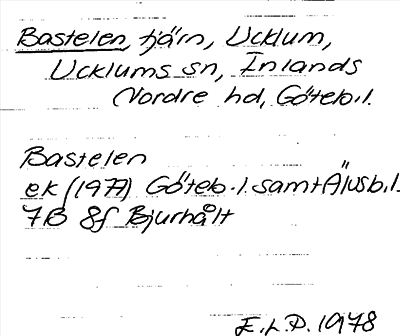 Bastelen, tjärn, Ucklum,
Ucklums sn, Inlands
Nordre hd, Göteb.l.
Bastelen
ek (1977) Göteb.l. samt Älvsb.l.
7B 8f Bjurhält
E.L.P. 1978